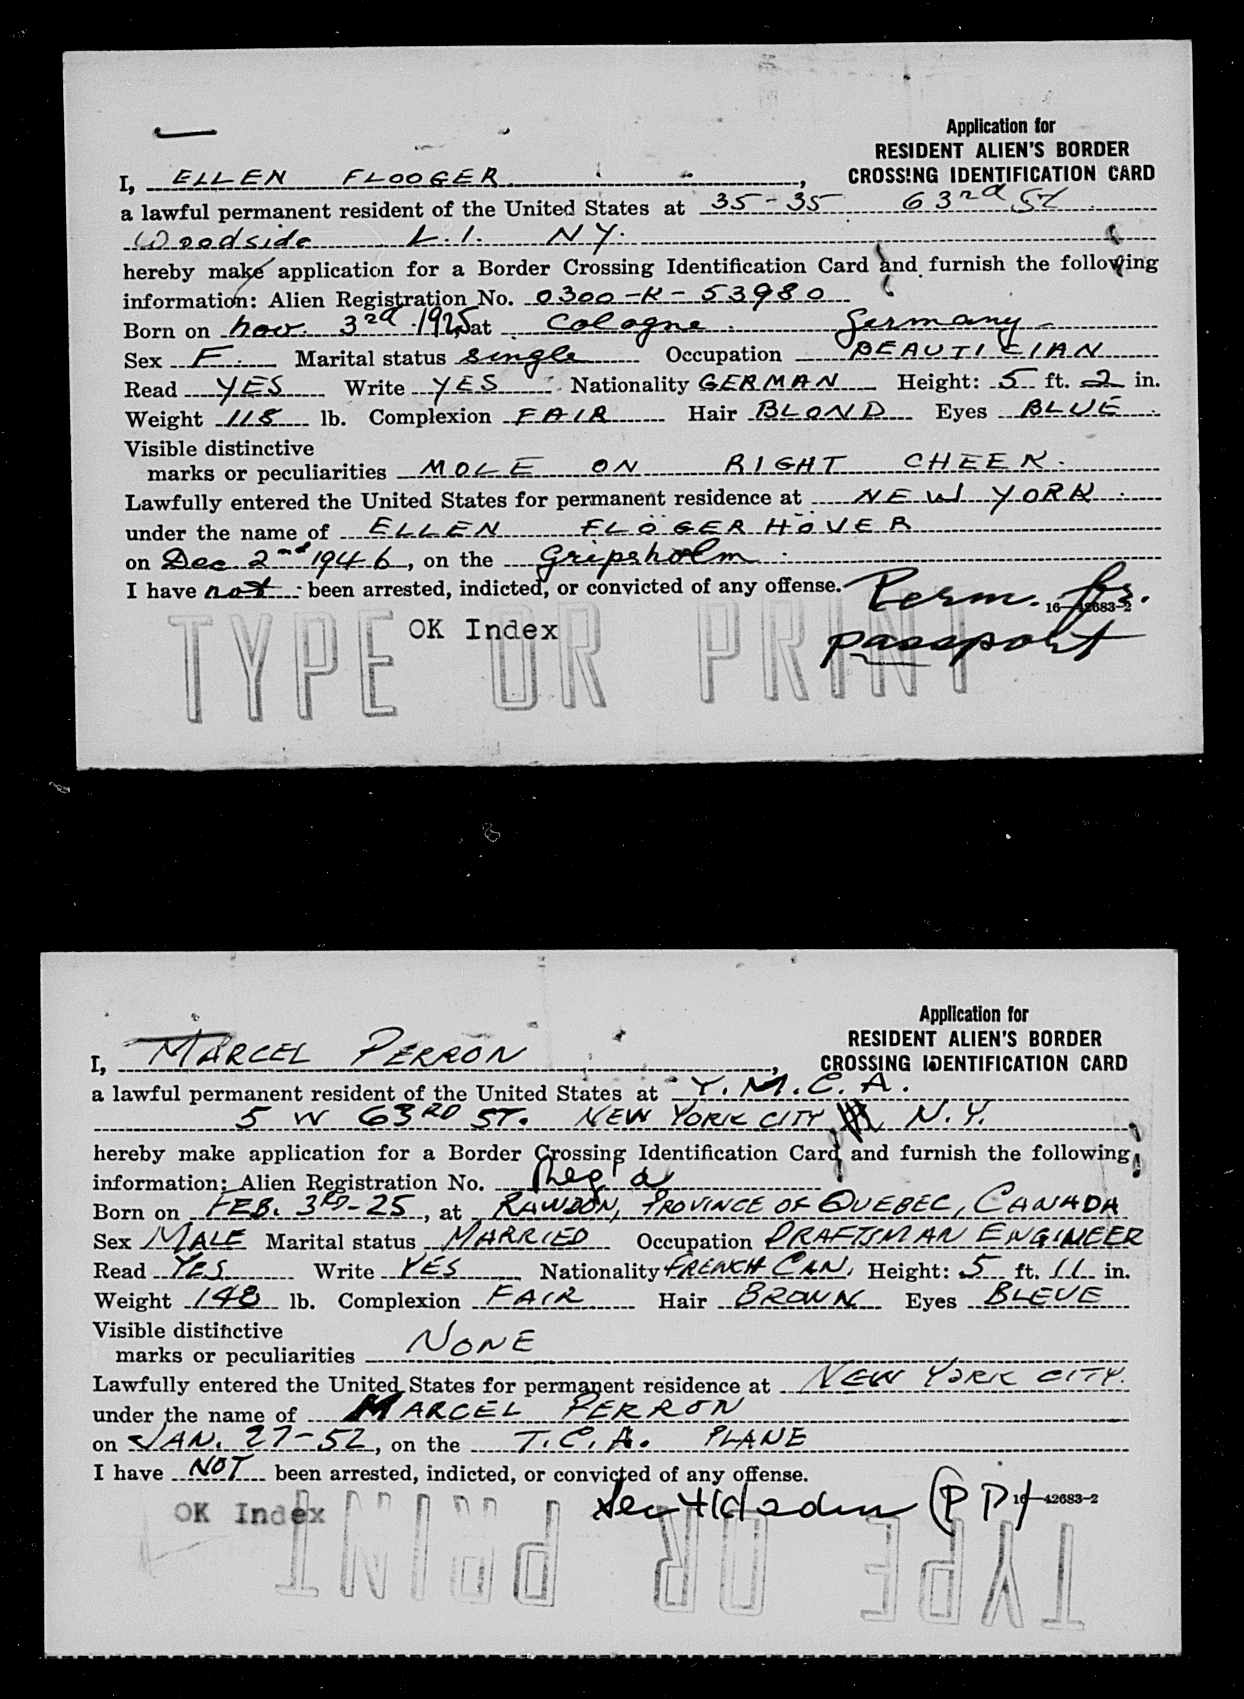 Application for
RESIDENT ALIEN'S BORDER
CROSSING IDENTIFICATION CARD
I, ELLEN FLOOGER,
a lawful permanent resident of the United States at 35-35 63rd St
Woodside L.I. NY.
hereby make application for a Border Crossing Identification Card and furnish the following
information: Alien Registration No. 0300-K-53980
Born on Nov. 3rd 1925 at Cologne Germany
Sex F. Marital status single Occupation BEAUTICIAN
Read YES Write YES Nationality GERMAN Height: 5 ft. 2 in.
Weight 118 lb. Complexion FAIR Hair BLOND Eyes BLUE
Visible distinctive
marks or peculiarities MOLE ON RIGHT CHEEK.
Lawfully entered the United States for permanent residence at NEW YORK
under the name of ELLEN FLÖGERHÖVER
on Dec 2nd 1946, on the Gripsholm
I have not been arrested, indicted, or convicted of any offense.
Perm. fr.
16—42683-2
passport
OK Index
TYPE OR PRINT
Application for
RESIDENT ALIEN'S BORDER
CROSSING IDENTIFICATION CARD
I, MARCEL PERRON,
a lawful permanent resident of the United States at Y.M.C.A.
5 W 63RD ST. NEW YORK CITY N.Y.
hereby make application for a Border Crossing Identification Card and furnish the following
information: Alien Registration No. Reg'd
Born on FEB. 3RD-25, at RAWDON, PROVINCE OF QUEBEC, CANADA
Sex MALE Marital status MARRIED Occupation DRAFTSMAN ENGINEER
Read YES Write YES Nationality FRENCH CAN, Height: 5 ft. 11 in.
Weight 148 lb. Complexion FAIR Hair BROWN Eyes BLEUE
Visible distinctive
marks or peculiarities NONE
Lawfully entered the United States for permanent residence at NEW YORK CITY.
under the name of MARCEL PERRON
on JAN. 27-52, on the T.C.A. PLANE
I have NOT been arrested, indicted, or convicted of any offense.
(PP) 16—42683-2
OK Index
TYPE OR PRINT